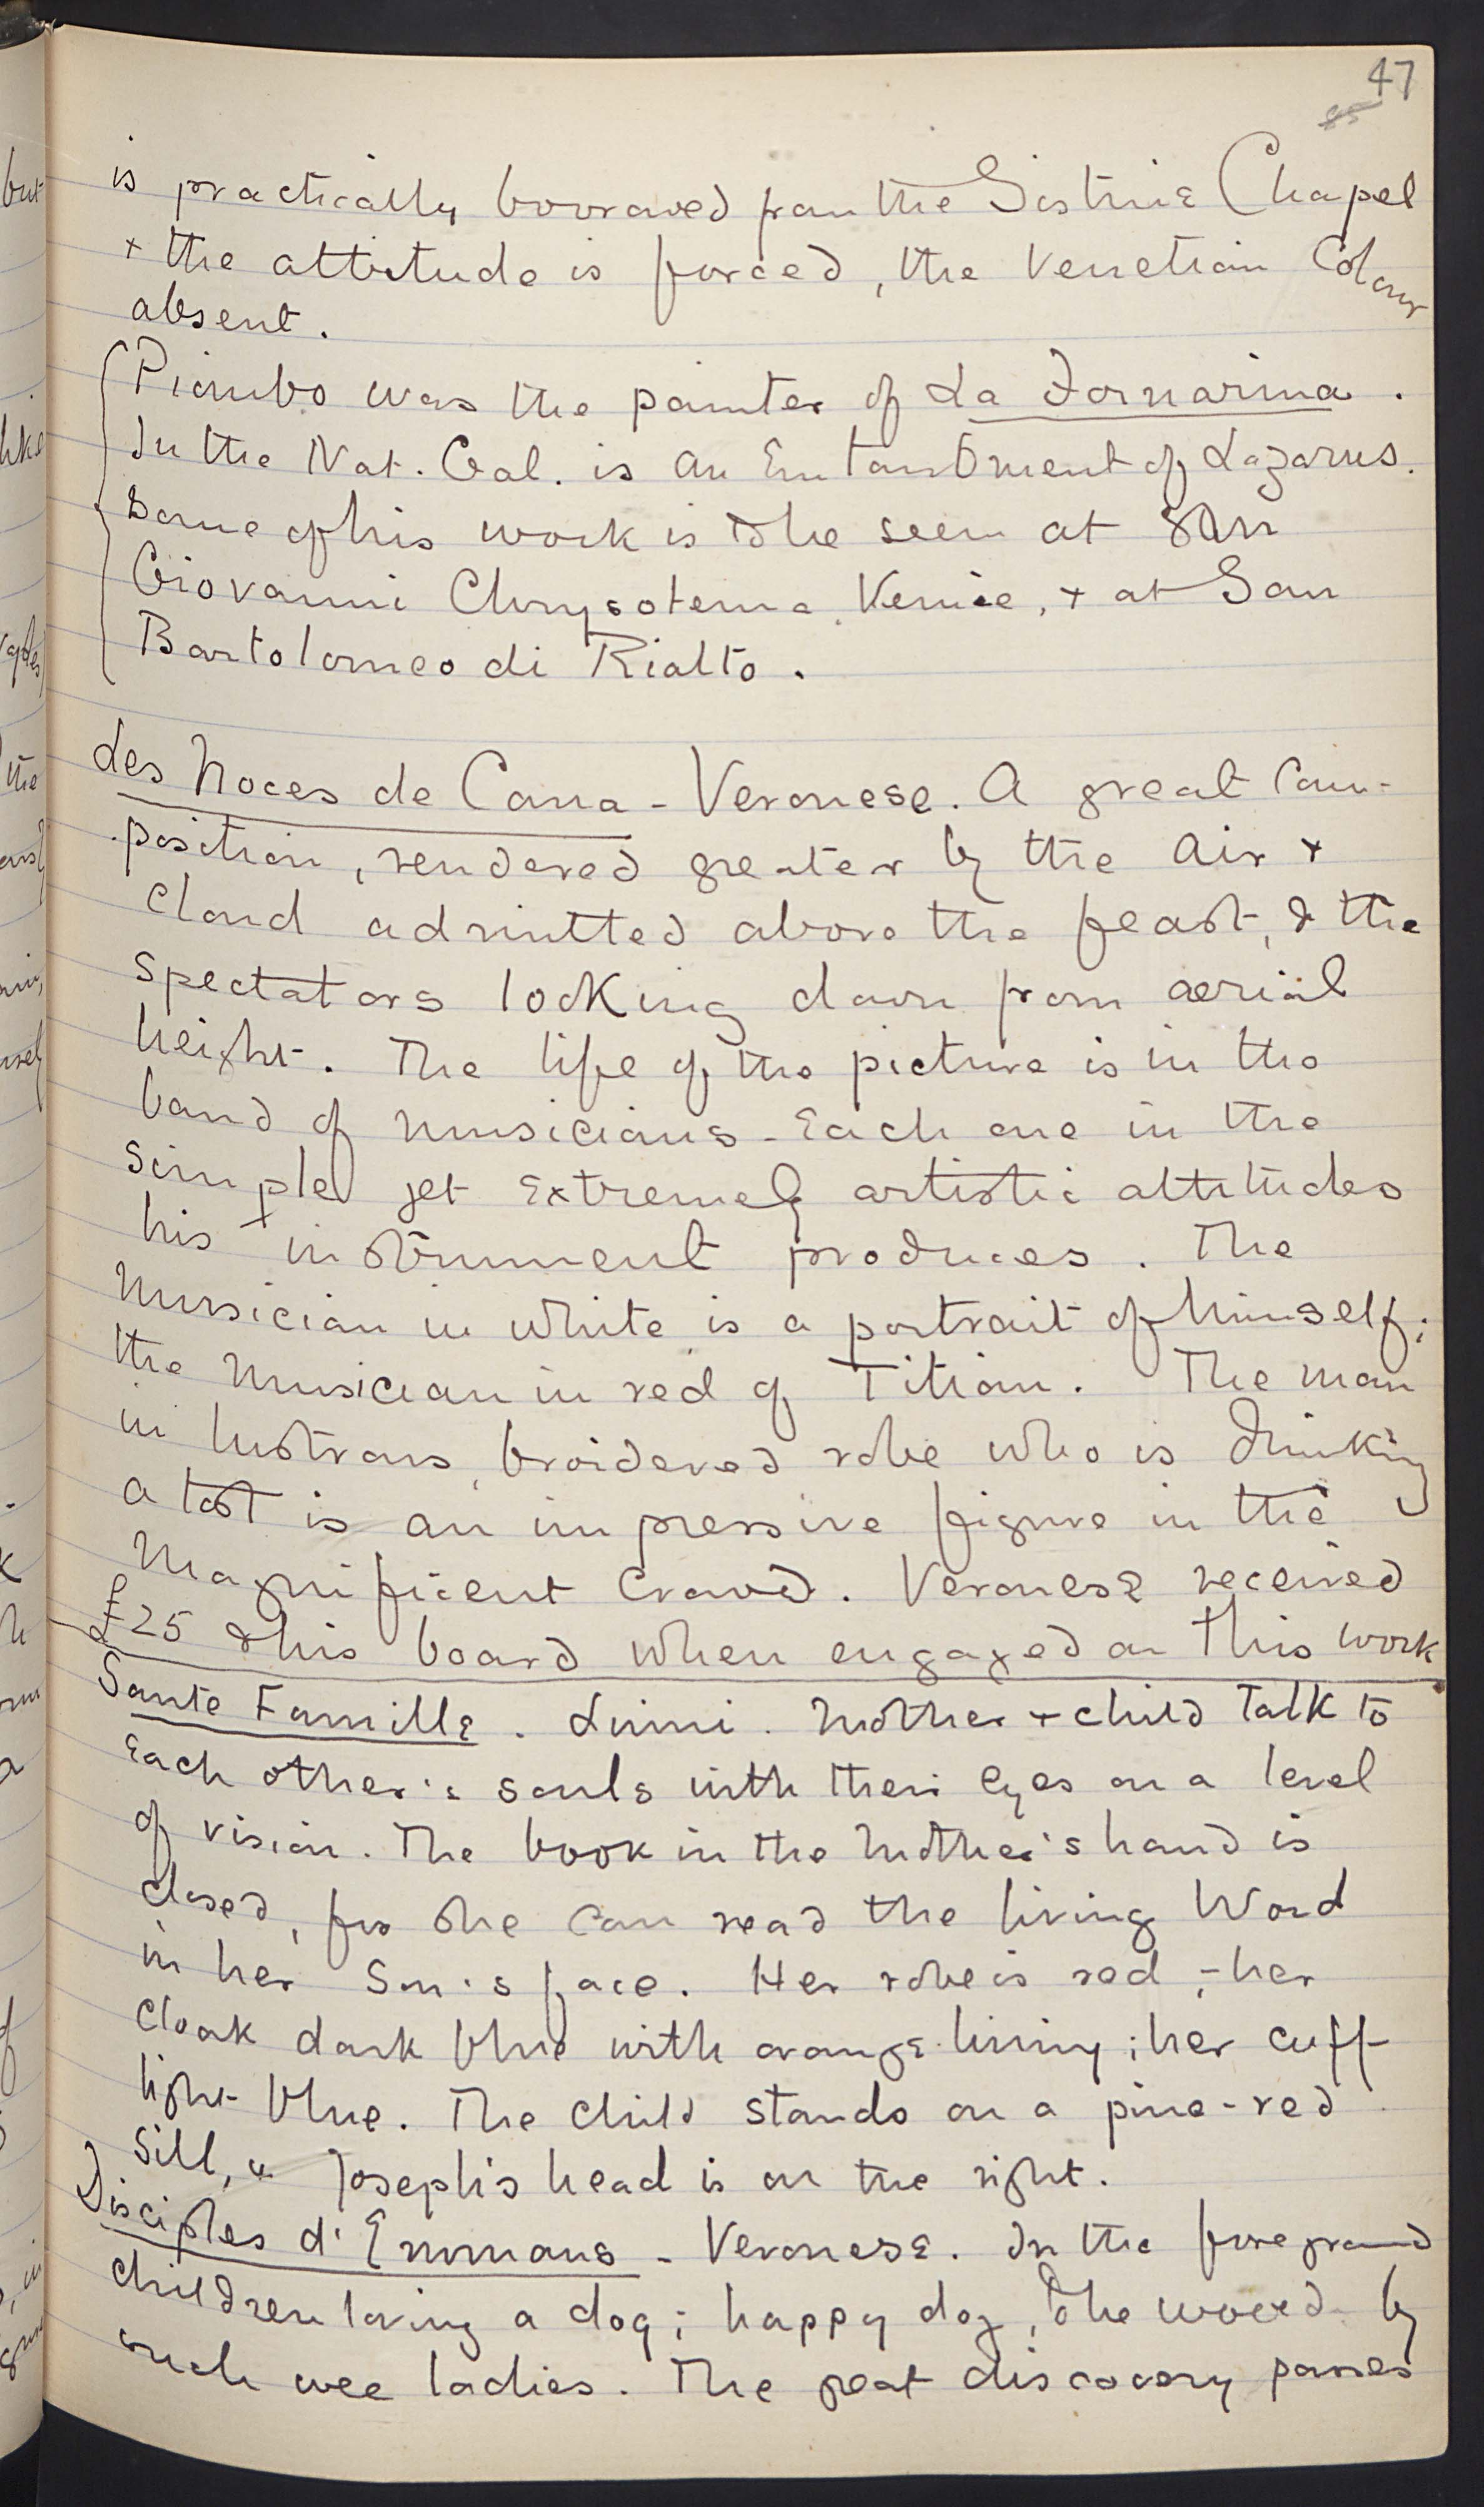 47
is practically borrowed from the Sistine Chapel
+ the attitude is forced, the Venetian Colour
absent.
Piombo was the painter of La Fornarina.
In the Nat. Gal. is an Entombment of Lazarus.
Some of his work is to be seen at San
Giovanni Chrysotema Venice, + at San
Bartolomeo di Rialto.
Les Noces de Cana - Veronese. A great Com-
position, rendered greater by the air +
Cloud admitted above the feast, & the
spectators looking down from aerial
height. The life of the picture is in the
band of musicians - Each one in the
simple yet extremely artistic attitudes
his instrument produces. The
Musician in white is a portrait of himself;
the Musician in red of Titian. The man
in lustrous, broidered robe who is drinking
a tost is an impressive figure in the
Magnificent Crowd. Veronese received
£25 & his board when engaged on this work
Sante Famille. Luini. Mother + child Talk to
Each other's souls with their Eyes on a level
of vision. The book in the Mother's hand is
closed, for she can read the living Word
in her Son's face. Her robe is red, - her
Cloak dark blue with orange lining; her cuff
light blue. The Child stands on a pine-red
sill, & Joseph's head is on the right.
Disciples d'Emmaus - Veronese. In the foreground
children loving a dog; happy dog, to be wooed by
such wee ladies. The great discovery passes